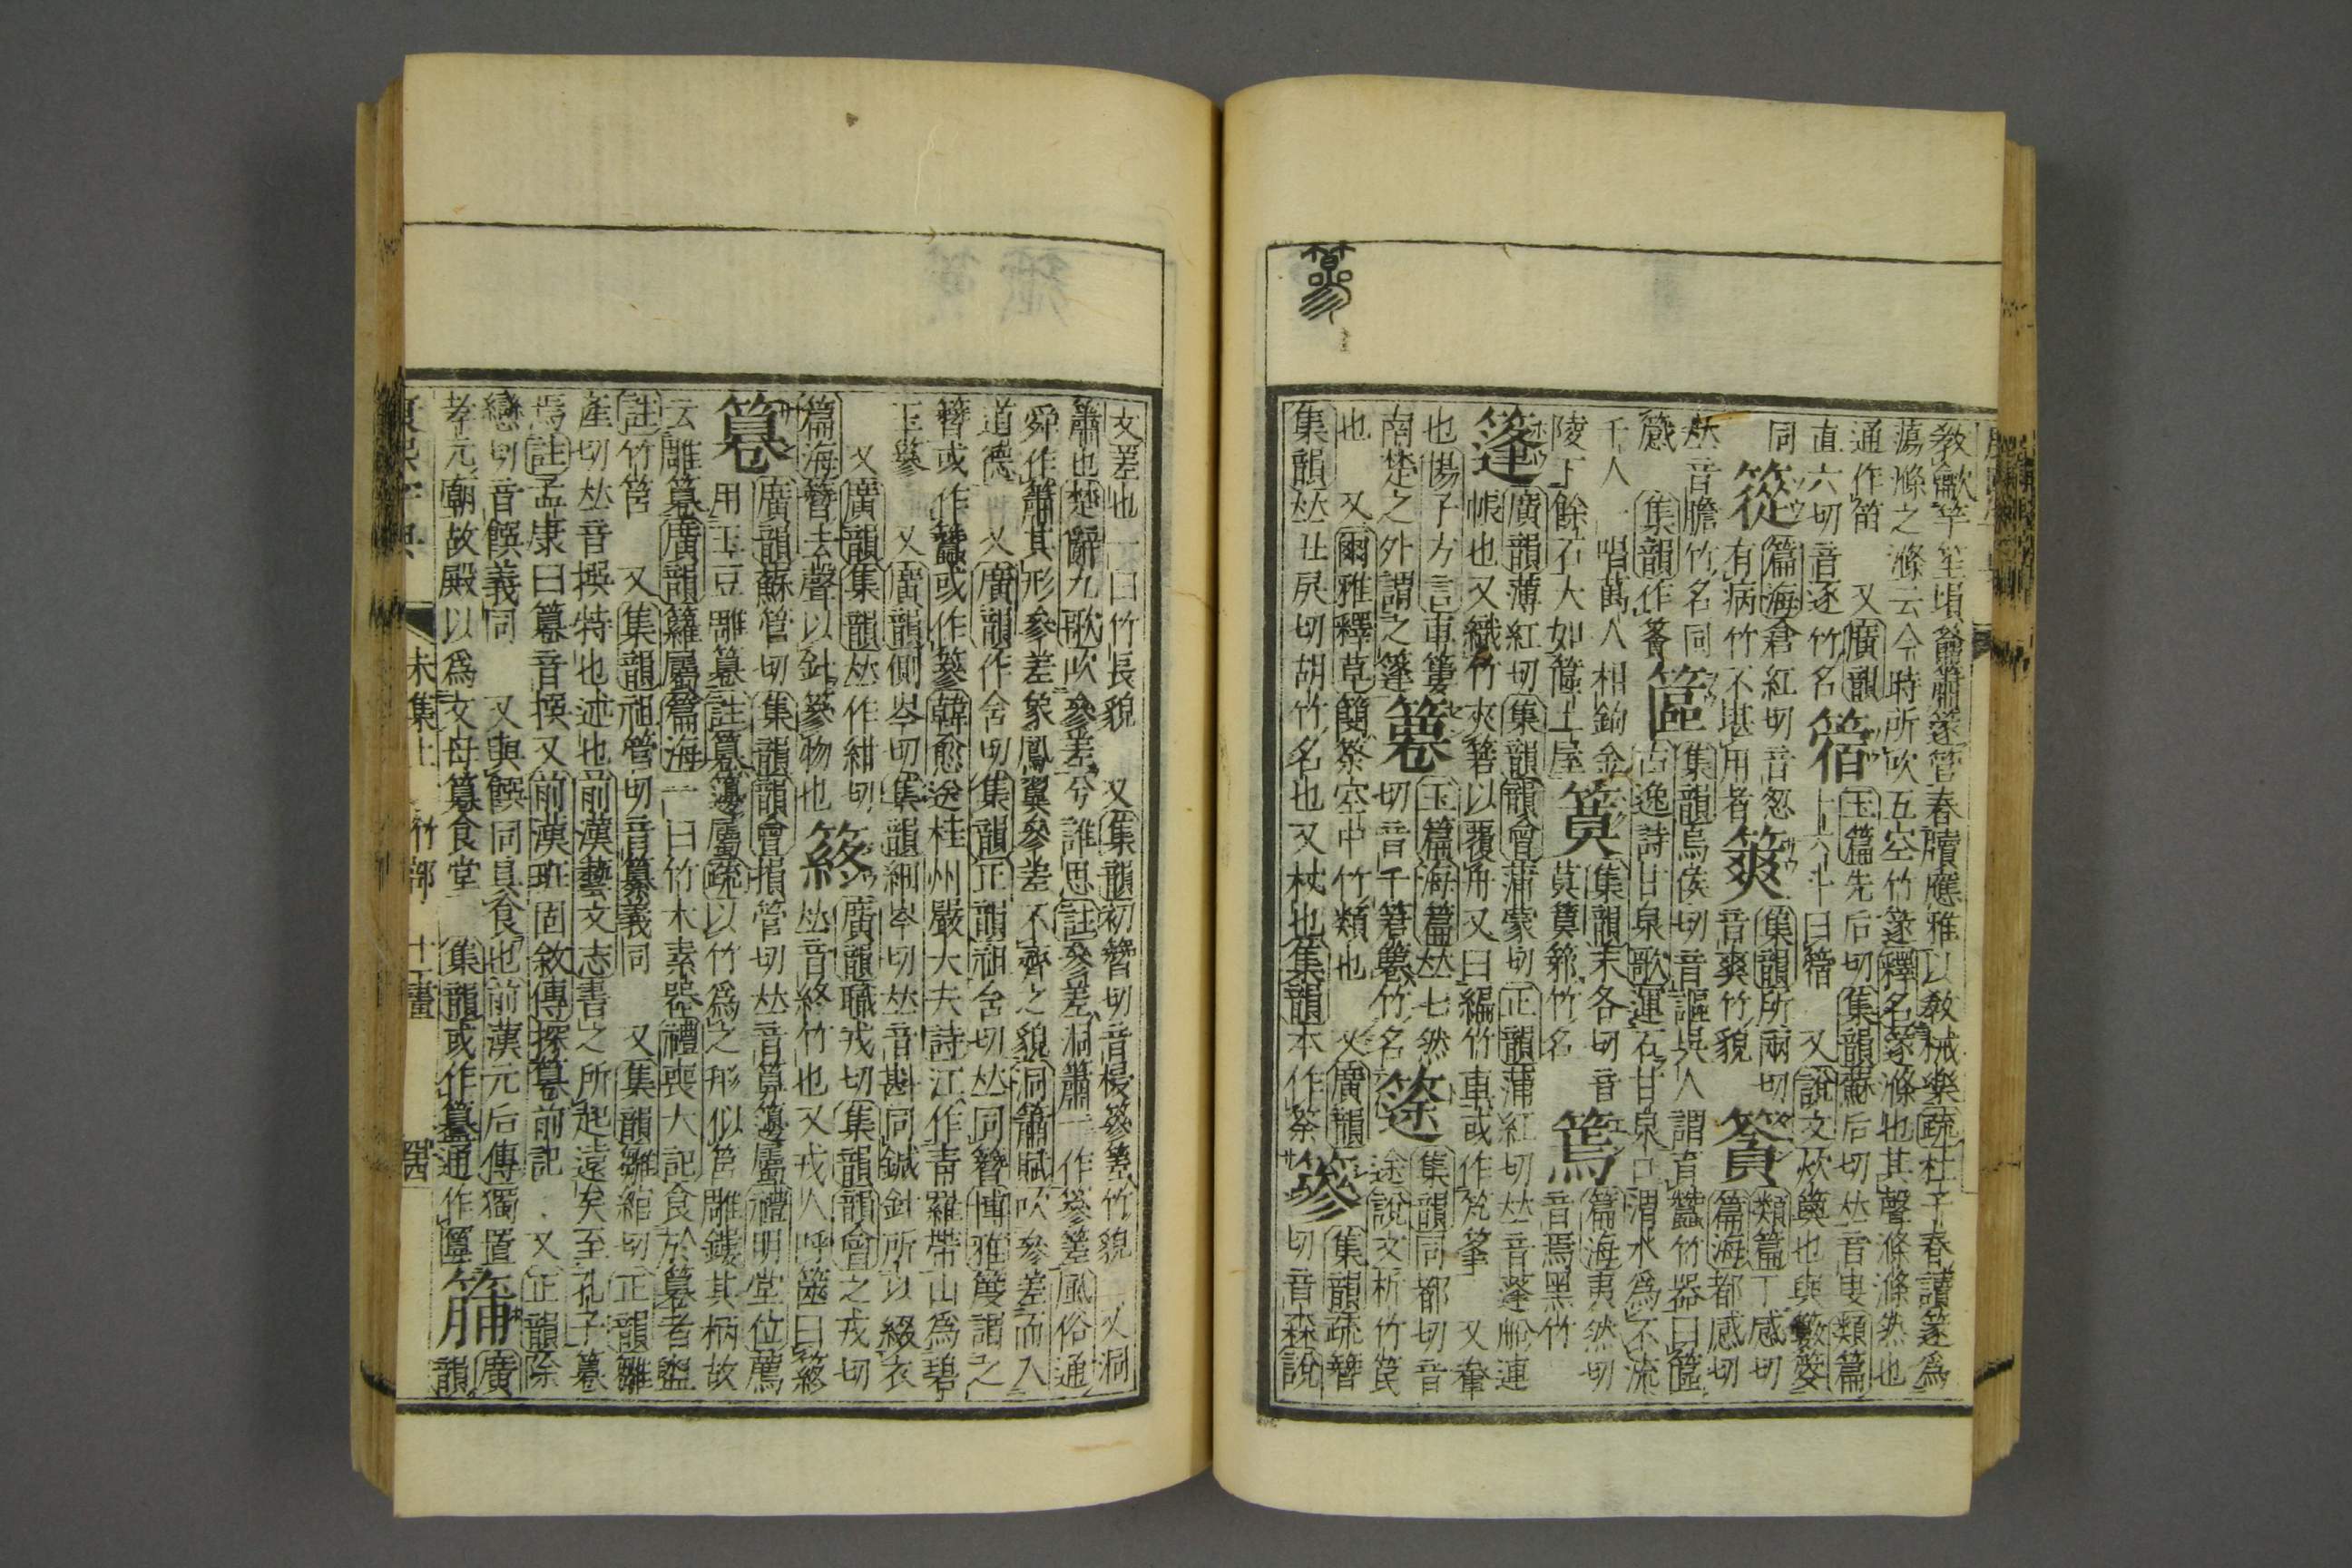 敎龡竽笙塤籥簫篴管春牘應雅以敎祴樂疏杜子春讀篴爲
蕩滌之滌云今時所吹五空竹篴釋名篴滌也其聲滌滌然也
通作笛 又廣韻
直六切音逐竹名
𥯪
玉篇先后切集韻蘇后切𠀤音叟類篇
十六斗曰𥯪 又說文炊䉛也與籔籔
同
篵
篇海倉紅切音怱
有病竹不堪用者
䉀
集韻所兩切
音爽竹貌
類篇丁感切
篇海都感切
𠀤音膽竹名同
集韻作䈴
䈆
集韻烏侯切音謳吳人謂育蠶竹器曰䈆
古逸詩甘泉歌運石甘泉口渭水爲不流
千人一唱萬人相鉤金
陵下餘石大如䈆土屋
䈿
集韻末各切音
莫䈿竹名
篶
篇海夷然切
音焉黑竹
篷
廣韻薄紅切集韻韻會蒲蒙切正韻蒲紅切𠀤音蓬船連
帳也又織竹夾箬以覆舟又曰編竹車或作芃 又輂
也揚子方言車簍
南楚之外謂之篷
玉篇海篇𠀤七然
切音千竹名
筡
集韻同都切音
途說文析竹笢
也 又爾雅釋草簢筡空中竹類也 又廣韻
集韻𠀤丑戾切胡竹名也又杖也集韻本作筡
篸
集韻疏簪
切音森說
文差也一曰竹長貌 又集韻初簪切音㮂篸差竹貌 又洞
簫也楚辭九歌吹參差兮誰思註參差洞簫一作篸差風俗通
舜作簫其形參差象鳳翼參差不齊之貌洞簫賦吹參差而入
道德 又廣韻作含切集韻正韻祖含切𠀤同簪博雅篸謂之
簪或作䘉或作篸韓愈送桂州嚴大夫詩江作靑羅帶山爲碧
玉篸 又廣韻側岑切集韻緇岑切𠀤音斟同鍼針所以綴衣
又廣韻集韻𠀤作紺切
篇海簪去聲以針篸物也
䈺
廣韻職戎切集韻韻會之戎切
𠀤音終竹也又戎人呼篴曰䈺
篹
廣韻蘇管切集韻韻會損管切𠀤音算籩屬禮明堂位薦
用玉豆雕篹註篹籩屬疏以竹爲之形似筥雕鏤其柄故
云雕篹廣韻籮屬篇海一曰竹木素器禮喪大記食於篹者盥
註竹筥 又集韻祖管切音纂義同 又集韻雛綰切正韻雛
產切𠀤音撰特也述也前漢藝文志書之所起遠矣至孔子篹
焉註孟康曰篹音撰又前漢班固敘傳探篹前記 又正韻除
戀切音饌義同 又與饌同具食也前漢元后傳獨置
孝元廟故殿以爲文母篹食堂 集韻或作籑通作匴
䈬
廣
韻
康熙字典
未集上 竹部 十一畫